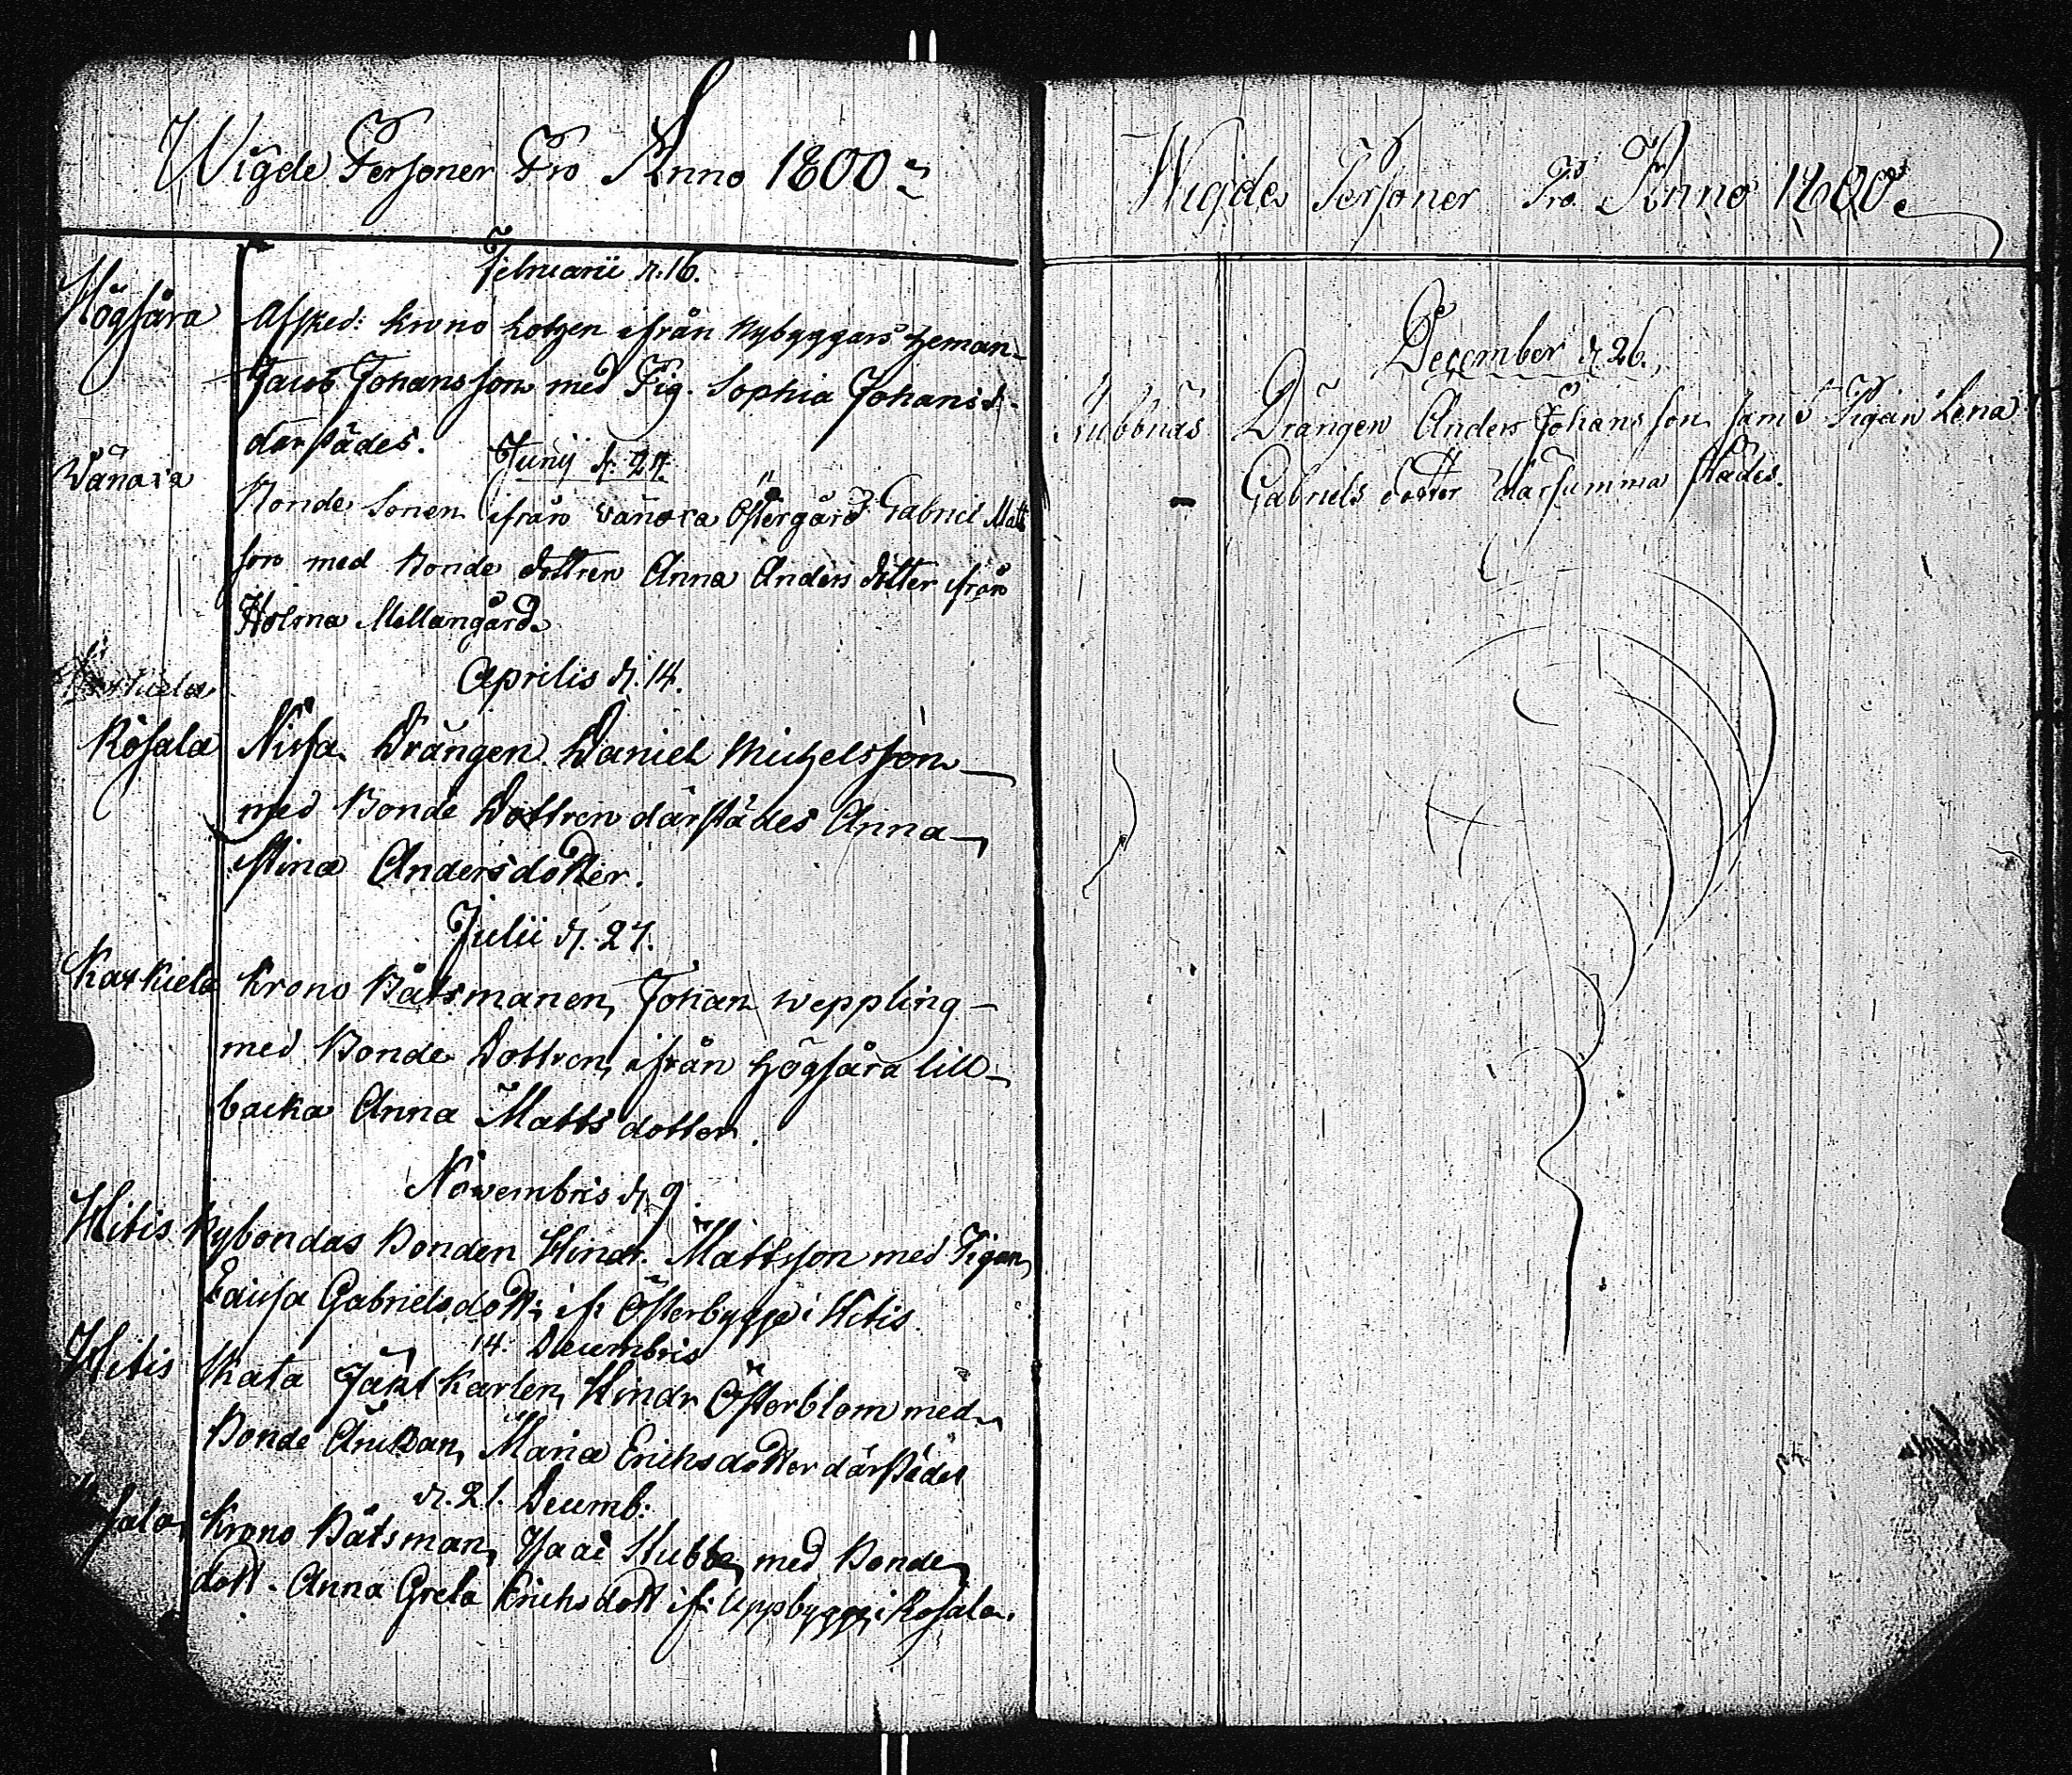 Wigde Personer Pro Anno 1800
Februarii d. 16.
Högsåra Afsked: Krono Lotzen ifrån Nybyggars Heman
Jacob Johansson med Pig. Sophia Johansd.
därstädes.
Junij d. 24.
Wänoxa Bonde Sonen ifrån Wänoxa Östergård Gabriel Matt
son med Bonde dottren Anna Anders dotter ifrån
Holma Mellangård.
Aprilis d. 14.
Rosala Nissa Drängen Daniel Michelsson
med Bonde Dottren därstädes Anna
Stina Andersdotter.
Julii d. 27.
Karkiela Krono Båtsmanen Johan Weppling
med Bonde Dottren ifrån Högsåra Lill
backa Anna Matts dotter.
Novembris d. 9.
Hitis Nybondas Bonden Hindr. Mattsson med Pigan
Caisa Gabrielsdott: if: Österbygge i Hitis
14. Decembris
Hitis Skata Jäkt Karlen Hindr Österblom med
Bonde Änckan Maria Erichsdotter därstädes
d. 21. Decemb:
sala Krono Båtsman Isaac Stubbe med Bonde
dott. Anna Greta Erichsdott if: Uppbygge i Rosala.
Wigde Personer Pro Anno 1800
December d. 26.
Kubbnäs Drängen Anders Johansson samt Pigan Lena
Gabriels dotter därsamma städes.